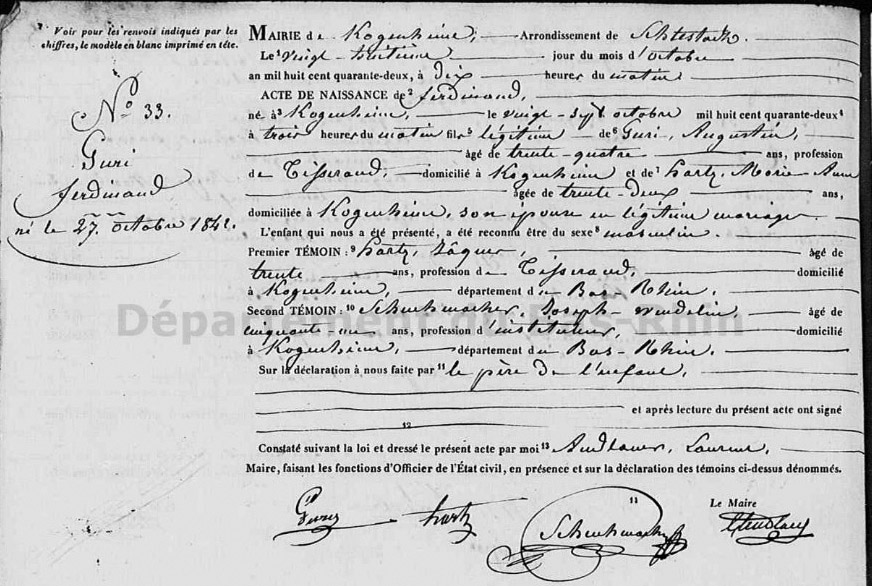 * Voir pour les renvois indiqués par les
chiffres, le modèle en blanc imprimé en tête.
No 33.
Guri
ferdinand
né le 27. octobre 1842.
MAIRIE de Kogenheim, Arrondissement de Schlestadt.
Le 1 vingt-huitième jour du mois d'octobre
an mil huit cent quarante-deux, à dix heures du matin
ACTE DE NAISSANCE de 2 ferdinand,
né à 3 Kogenheim, le vingt-sept octobre mil huit cent quarante-deux 4
à trois heures du matin fils 5 légitime de 6 Guri, Augustin,
âgé de trente-quatre ans, profession
de Tisserand, domicilié à Kogenheim et de 7 hartz, Marie-Anne
âgée de trente-deux ans,
domiciliée à Kogenheim, son épouse en légitime mariage.
L'enfant qui nous a été présenté, a été reconnu être du sexe 8 masculin.
Premier TÉMOIN : 9 hartz, Jâques, âgé de
trente ans, profession de Tisserand, domicilié
à Kogenheim, département du Bas-Rhin.
Second TÉMOIN : 10 Schuhmacher, Joseph-wendelin, âgé de
cinquante un ans, profession d'instituteur, domicilié
à Kogenheim, département du Bas-Rhin.
Sur la déclaration à nous faite par 11 le père de l'enfant,
et après lecture du présent acte ont signé
12
Constaté suivant la loi et dressé le présent acte par moi 13 Andlauer, Laurent,
Maire, faisant les fonctions d'Officier de l'État civil, en présence et sur la déclaration des témoins ci-dessus dénommés.
11 Le Maire
hartz Schuhmacher
Département du Bas-Rhin